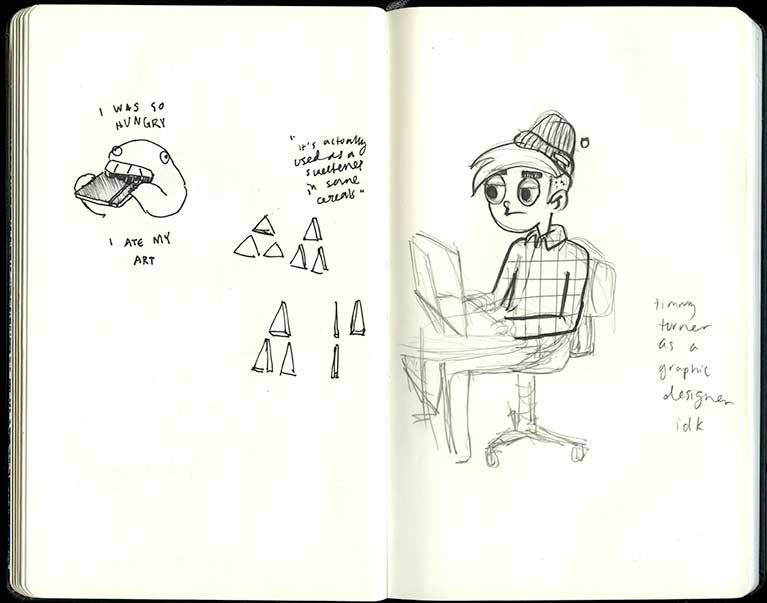 I WAS SO
HUNGRY
I ATE MY
ART
"it's actually
used as a
sweetener
in some
cereals"
timmy
turner
as a
graphic
designer
idk